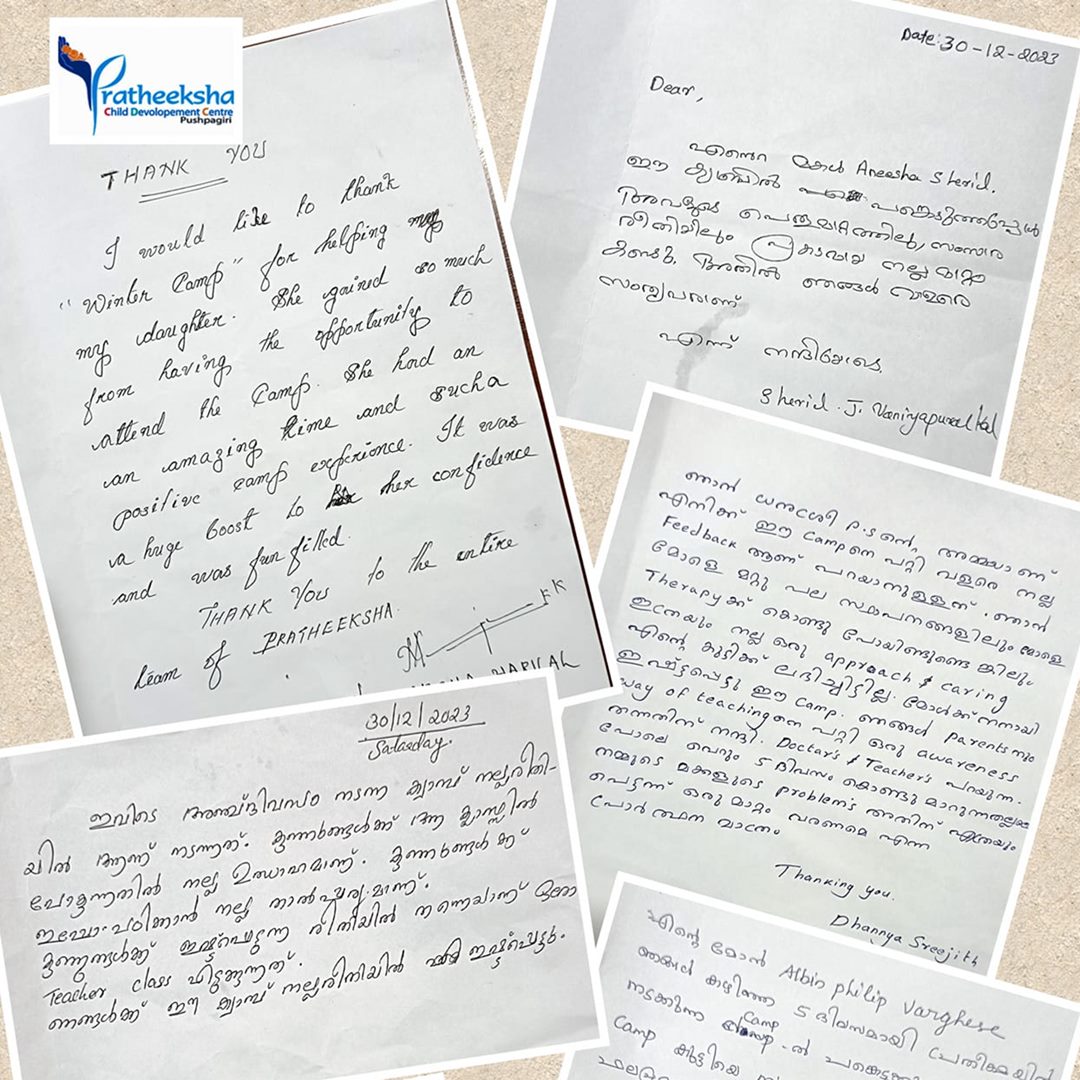 Pratheeksha
Child Developement Centre
Pushpagiri
THANK YOU
I would like to thank
"Winter Camp" for helping my
my daughter. She gained so much
from having the opportunity to
attend the Camp. She had an
an amazing time and such a
positive camp experience. It was
a huge boost to her confidence
and was fun filled.
THANK YOU to the entire
team of PRATHEEKSHA.
Date: 30-12-2023
Dear,
എന്റെ മകൾ Aneesha Sherid.
ഈ ക്യാമ്പിൽ പങ്കെടുത്തപ്പോൾ
അവളുടെ പെരുമാറ്റത്തിലും, സംസാര
രീതിയിലും പ്രകടമായ നല്ല മാറ്റം
കണ്ടു. അതിൽ ഞങ്ങൾ വളരെ
എന്ന് നന്ദിയോടെ
Sherid. J.
ഞാൻ P.S ന്റെ അമ്മയാണ്
എനിക്ക് ഈ Camp നെ പറ്റി വളരെ നല്ല
Feedback ആണ് പറയാനുള്ളത്. ഞാൻ
മോളെ മറ്റു പല സ്ഥാപനങ്ങളിലും മോളെ
Therapy ക്ക് കൊണ്ടു പോയിണ്ടുണ്ടെങ്കിലും
ഇത്രയും നല്ല ഒരു approach & caring
എന്റെ കുട്ടിക്ക് ലഭിച്ചിട്ടില്ല. മോൾക്ക് നന്നായി
ഇഷ്ട്ടപ്പെട്ടു ഈ Camp. ഞങ്ങൾ parents നും
way of teaching നെ പറ്റി ഒരു awareness
തന്നതിന് നന്ദി. Doctor's & Teacher's പറയുന്ന.
പോലെ വെറും 5 ദിവസം കൊണ്ടു മാറുന്നതല്ല
നമ്മുടെ മക്കളുടെ problem's അതിന് എത്രയും
പെട്ടന്ന് ഒരു മാറ്റം വരണമെ എന്ന
പ്രാർത്ഥന മാത്രം
Thanking you.
Dhannya Sreejith
30/12/2023
Satarday.
ഇവിടെ അഞ്ച്ദിവസം നടന്ന ക്യാമ്പ് നല്ലരീതി-
യിൽ ആണ് നടന്നത്. കുഞ്ഞുങ്ങൾക്ക് ആ ക്ലാസ്സിൽ
പോകുന്നതിൽ നല്ല ഉത്സാഹമാണ്. കുഞ്ഞുങ്ങൾക്ക്
പഠിക്കാൻ നല്ല താൽപ്പര്യമാണ്.
കുഞ്ഞുങ്ങൾക്ക് ഇഷ്ടപ്പെടുന്ന രീതിയിൽ തന്നെയാണ് ഓരോ
Teacher class എടുക്കുന്നത്.
ഞങ്ങൾക്ക് ഈ ക്യാമ്പ് നല്ലരീതിയിൽ ഇഷ്ടപ്പെട്ടു.
എന്റെ മോൻ Albin philip varghese
ഞങ്ങൾ കഴിഞ്ഞ 5 ദിവസമായി പ്രതീക്ഷയിൽ
നടക്കുന്ന Camp -ൽ
Camp കുട്ടിയെ